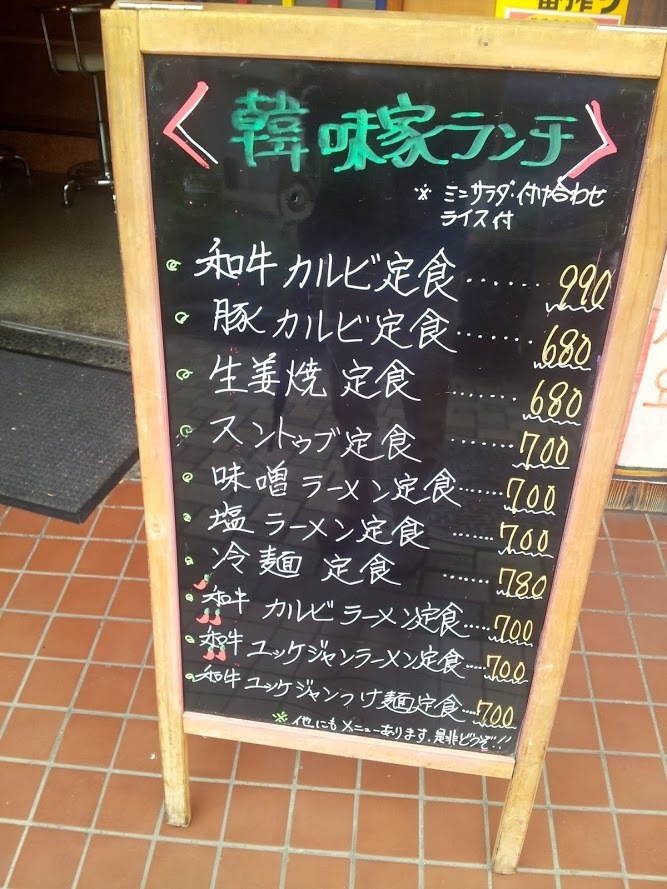 韓味家ランチ
※ ミニサラダ・付け合わせ
ライス付
和牛カルビ定食......990
豚カルビ定食.......680
生姜焼 定食 ......680
スントゥブ定食 ......700
味噌ラーメン定食......700
塩ラーメン定食 ......700
冷麺 定食 ......780
和牛 カルビラーメン定食.....700
和牛 ユッケジャンラーメン定食....700
和牛 ユッケジャンつけ麺定食....700
※ 他にもメニューあります。是非どうぞ!!